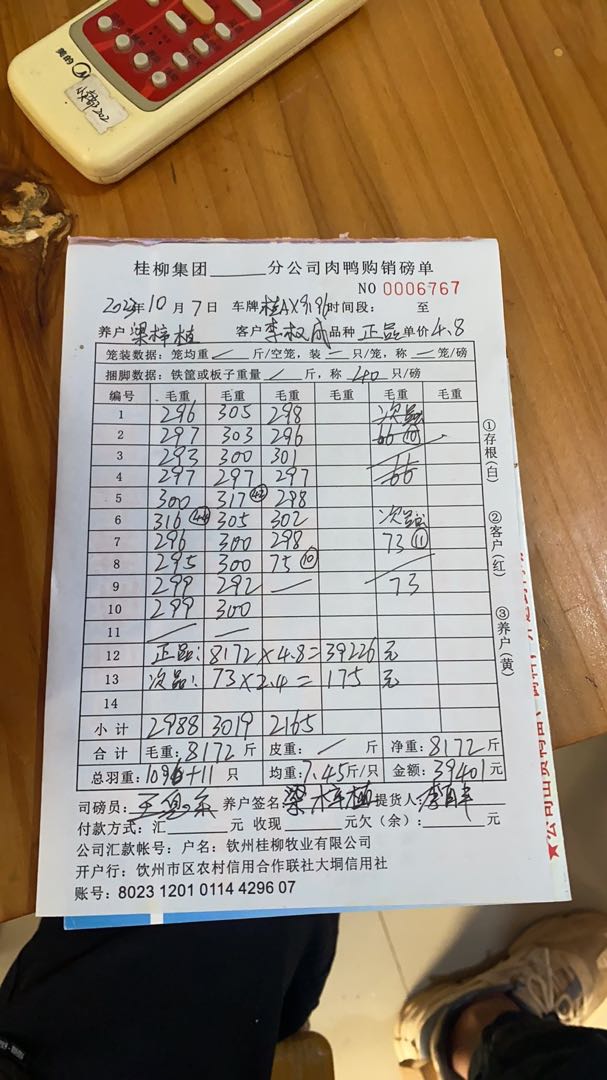 美的
桂柳集团______分公司肉鸭购销磅单
NO 0006767
2023年10月7日 车牌:桂AX9196 时间段: 至
养户 梁梓植 客户 李权成 品种 正品 单价 4.8
笼装数据:笼均重 / 斤/空笼,装 一 只/笼,称 一 笼/磅
捆脚数据:铁筐或板子重量 / 斤,称 40 只/磅
编号 毛重 毛重 毛重 毛重 毛重 毛重
1 296 305 298 次品
2 297 303 296
3 293 300 301
4 297 297 297 66
5 300 317 ㊷ 298
6 316 ㊹ 305 302 次品
7 296 300 298 73 ⑪
8 295 300 75 ⑩
9 299 292 — 73
10 299 300
11 — —
12 正品: 8172×4.8=39226 元
13 次品: 73×2.4=175 元
14
小计 2988 3019 2165
合计 毛重:8172斤 皮重: / 斤 净重:8172斤
总羽重:1096+11 只 均重:7.45斤/只 金额:39401元
司磅员: 养户签名: 梁梓植 提货人:
付款方式:汇______元 收现______元欠(余):______元
公司汇款帐号:户名:钦州桂柳牧业有限公司
开户行:钦州市区农村信用合作联社大垌信用社
账号:8023 1201 0114 4296 07
①存根(白)
②客户(红)
③养户(黄)